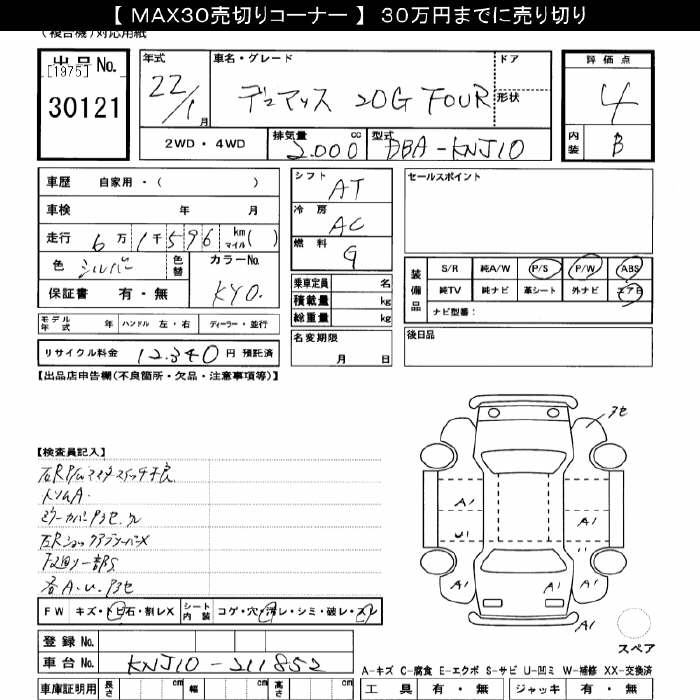 【 MAX30売切りコーナー 】 30万円までに売り切り
(複合機)対応用紙
出品 No.
[1975]
30121
年式
22/1
月
車名・グレード
デュアリス 20G FOUR
ドア
形状
評価点
4
内装
B
2WD・4WD
排気量
cc
2.000
型式
DBA-KNJ10
車歴 自家用・( )
車検 年 月
走行 6万1千596 km マイル( )
色 シルバー 色替 カラーNo.
KY0.
保証書 有・無
シフト AT
冷房 AC
燃料 G
乗車定員 名
積載量 kg
総重量 kg
セールスポイント
装備品
S/R 純A/W P/S P/W ABS
純TV 純ナビ 革シート 外ナビ エアB
ナビ型番:
モデル年式 年 ハンドル 左・右 ディーラー・並行
名変期限
月 日
後日品
リサイクル料金 12.340 円 預託済
【出品店申告欄(不良箇所・欠品・注意事項等)】
【検査員記入】
左R P/Wマイナースイッチ不良
トソムA.
ミラーカバーアセ.ク
左RショックアブソーバーX
下回り一部S
各A.U.アセ
アセ
A1
A1
U1
A1
A1
A1
A1
A1
FW キズ・トビ石・割レX シート内装 コゲ・穴・汚レ・シミ・破レ・スレ
登録 No.
車台 No. KNJ10-211852
スペア
A-キズ C-腐食 E-エクボ S-サビ U-凹ミ W-補修 XX-交換済
車庫証明用 長さ cm 幅 cm 高さ cm
工具 有・無 ジャッキ 有・無